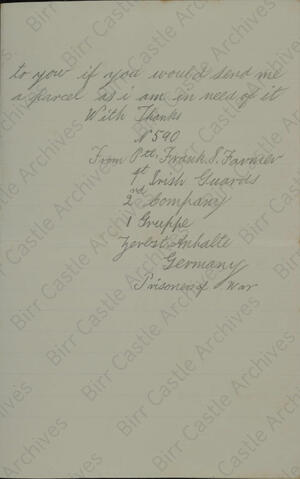 to you if you would send me
a parcel as i am in need of it
With Thanks
No 590
From Pte, Frank S. Farmer
1st Irish Guards
2nd Company
1 Gruppe
Zerest Anhalte
Germany
Prisoners of War
Birr Castle Archives